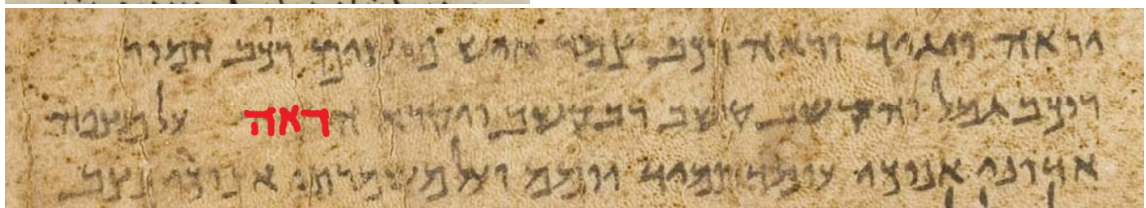 יראה ויגיד וראה רכב צמד איש פרשים רכב חמור
רוכב גמל והקשיב קשב רב קשב ויקרא הראה על מצפה
אדוני אנוכי עומד תמיד יומם ועל משמרתי אנוכי נצב